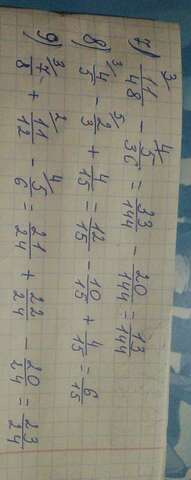 7) 11/48 ³/ - 5/36 ⁴/ = 33/144 - 20/144 = 13/144
8) 4/5 ³/ - 2/3 ⁵/ + 4/15 = 12/15 - 10/15 + 4/15 = 6/15
9) 7/8 ³/ + 11/12 ²/ - 5/6 ⁴/ = 21/24 + 22/24 - 20/24 = 23/24